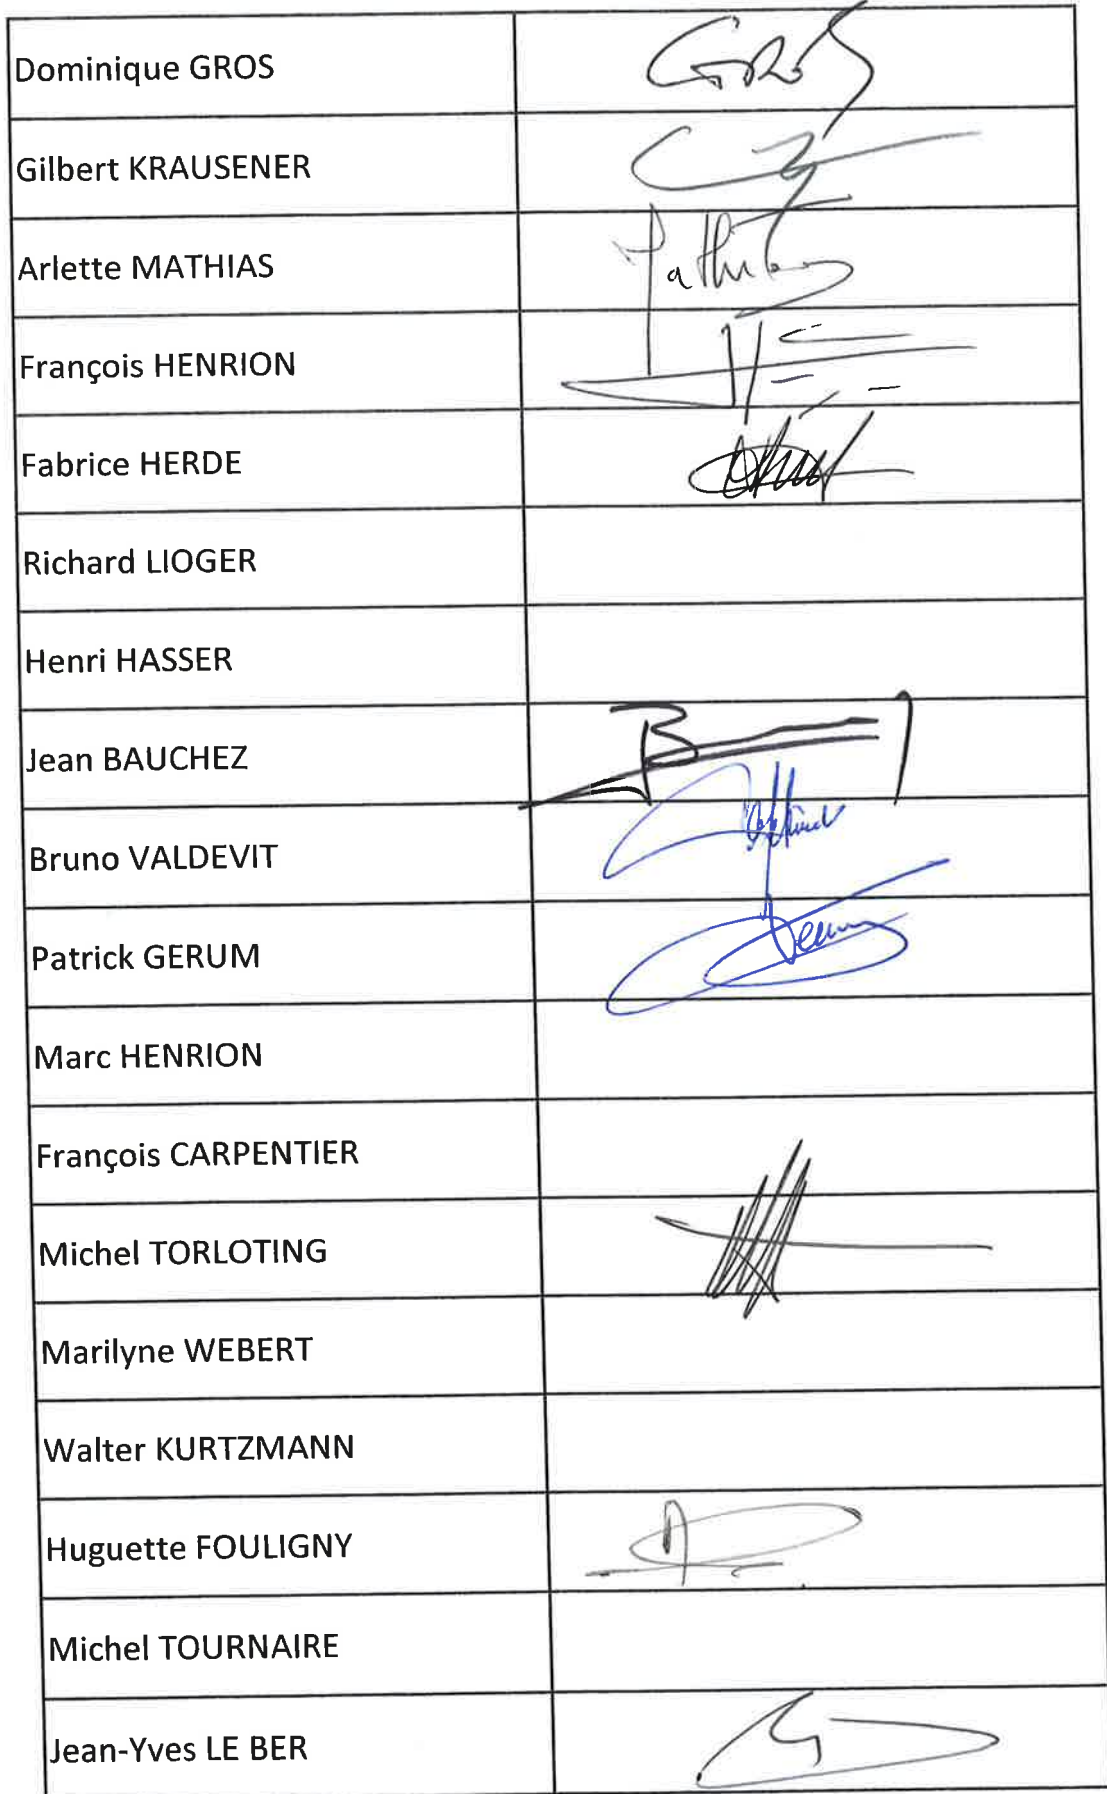 Dominique GROS GROS
Gilbert KRAUSENER
Arlette MATHIAS Mathias
François HENRION
Fabrice HERDE
Richard LIOGER
Henri HASSER
Jean BAUCHEZ
Bruno VALDEVIT
Patrick GERUM
Marc HENRION
François CARPENTIER
Michel TORLOTING
Marilyne WEBERT
Walter KURTZMANN
Huguette FOULIGNY
Michel TOURNAIRE
Jean-Yves LE BER